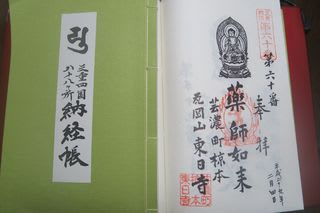 三重四国
八十八ヶ所
納経帳
第六十番
奉拝
藥師如来
芸濃町椋本
岡山東日寺
二月四日